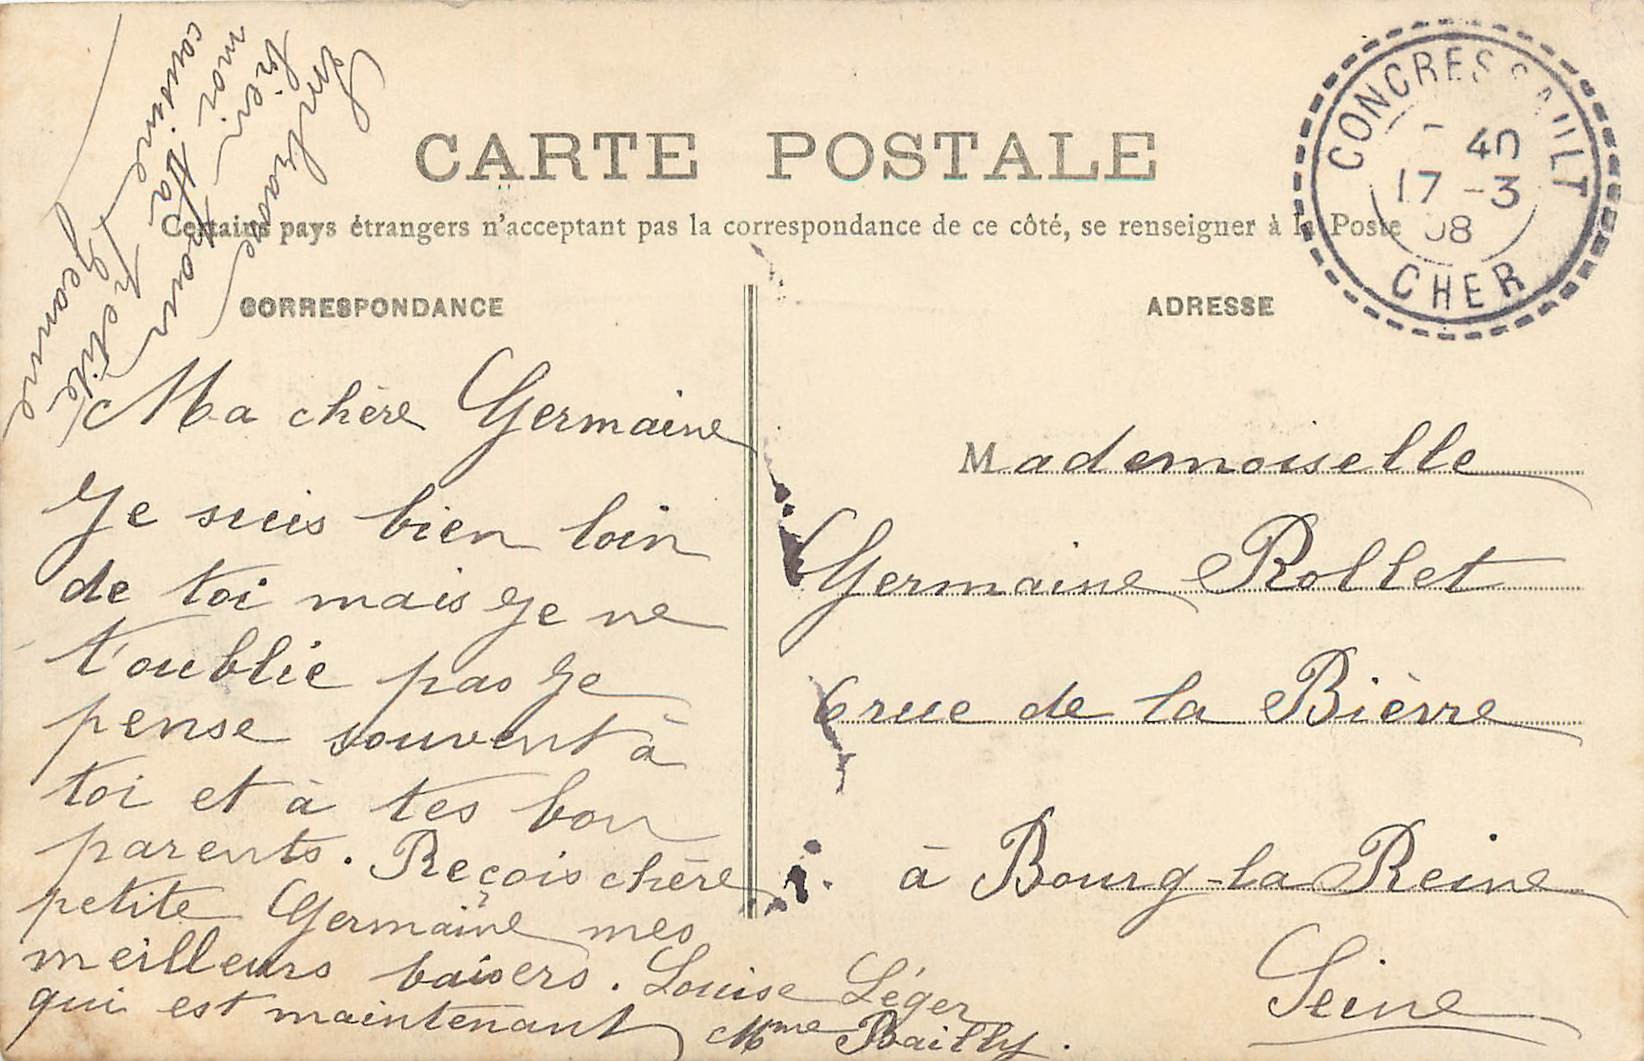 Embrasse
bien pour
moi ta petite
cousine Jeanne
CARTE POSTALE
Certains pays étrangers n'acceptant pas la correspondance de ce côté, se renseigner à la Poste
CONCRESSAULT
40
17 -3
08
CHER
CORRESPONDANCE
ADRESSE
Ma chère Germaine
Je suis bien loin
de toi mais je ne
t'oublie pas je
pense souvent à
toi et à tes bon
parents. Reçois chère
petite Germaine mes
meilleurs baisers. Louise Léger
qui est maintenant Mme Bailly.
Mademoiselle
Germaine Rollet
6 rue de la Bièvre
à Bourg-la Reine
Seine